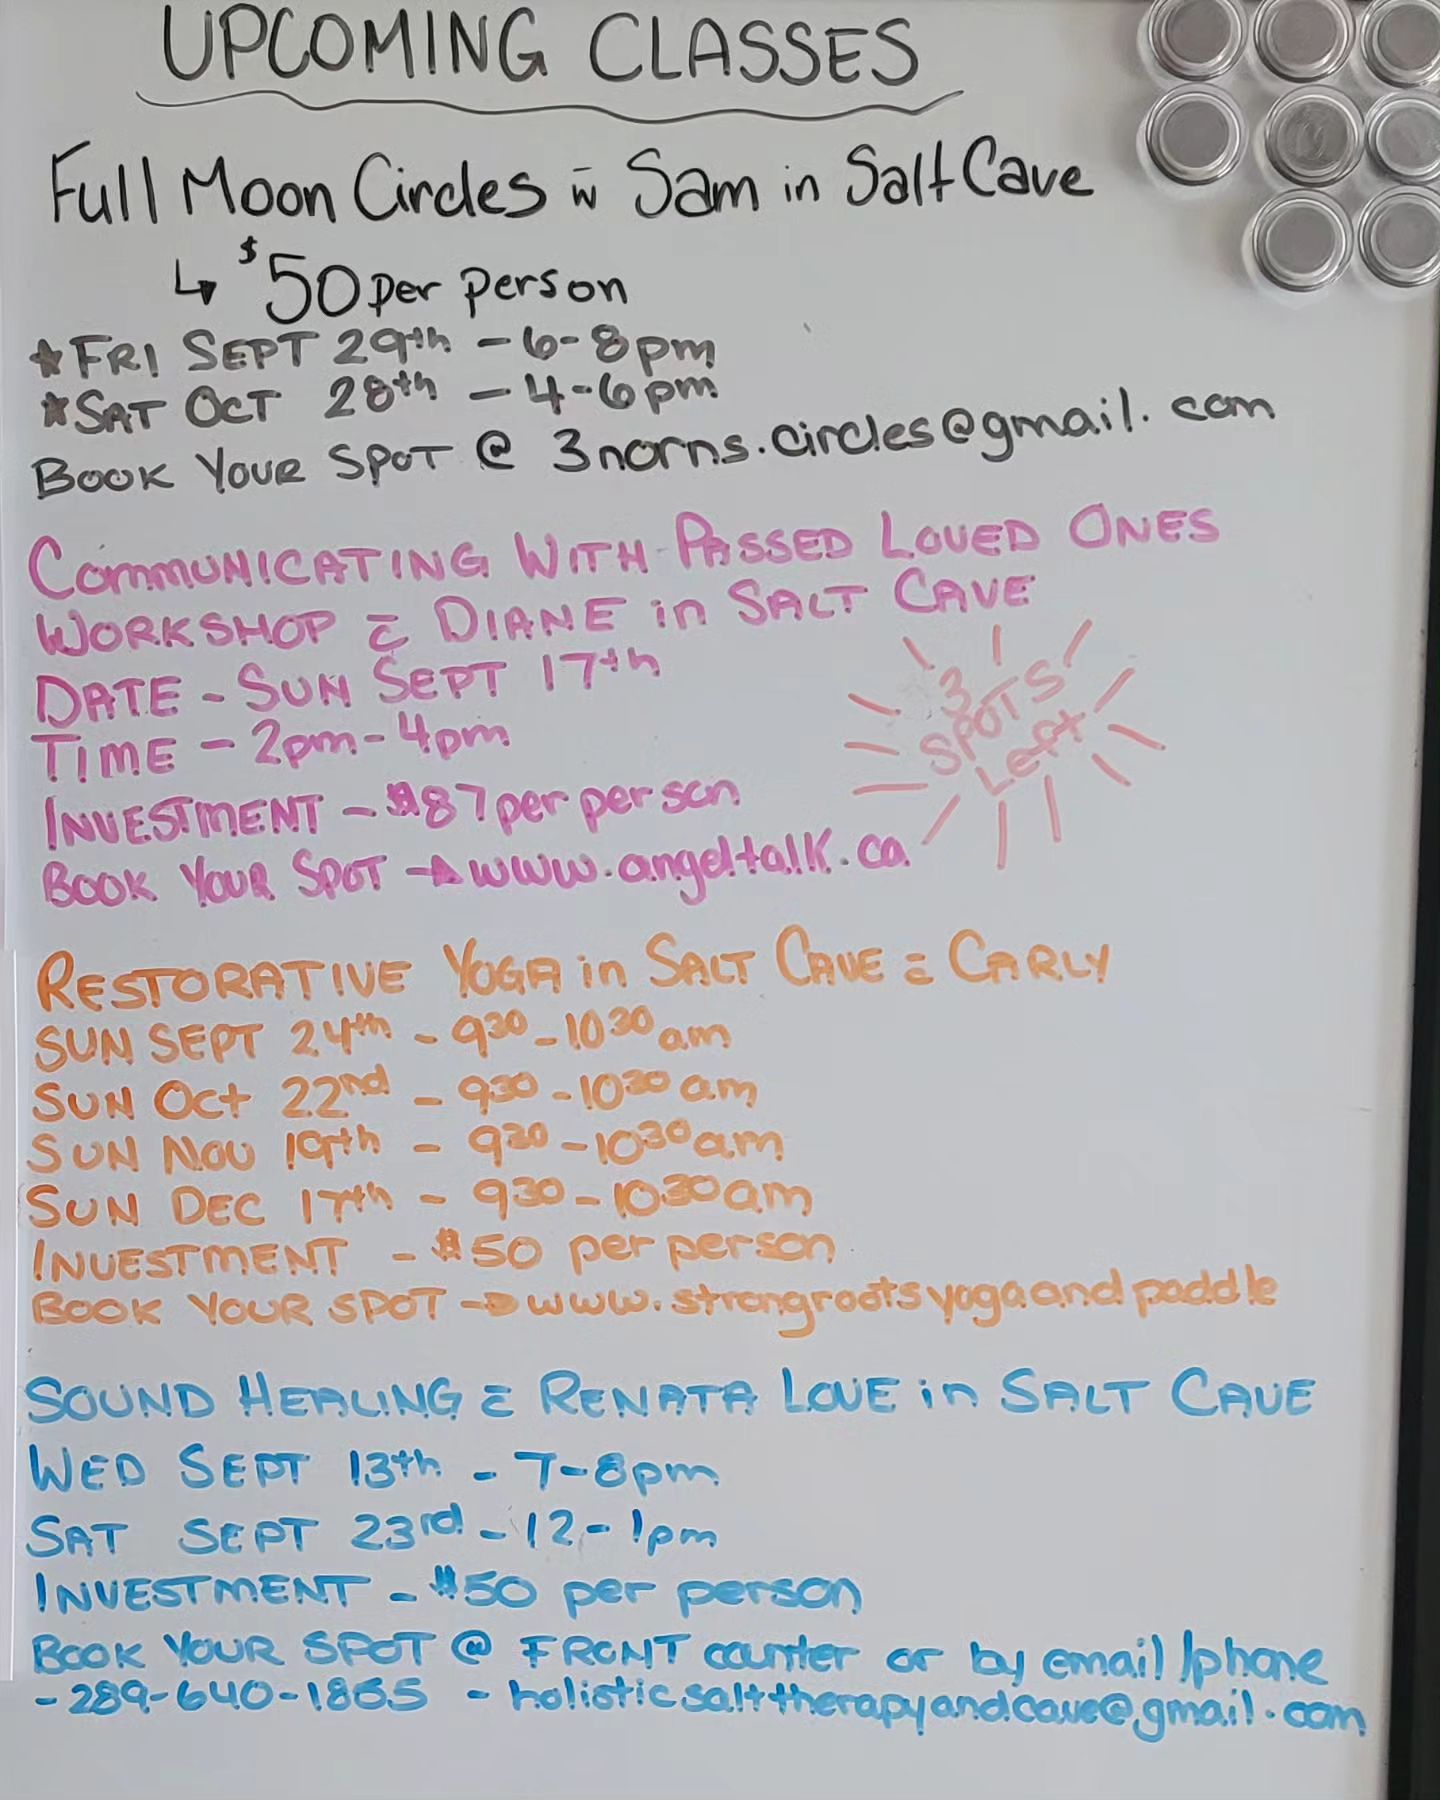 UPCOMING CLASSES
Full Moon Circles w̄ Sam in Salt Cave
↳ $50 per person
*FRI SEPT 29th - 6-8pm
*SAT OCT 28th - 4-6pm
BOOK YOUR SPOT @ 3norns.circles@gmail.com
COMMUNICATING WITH PASSED LOVED ONES
WORKSHOP c̄ DIANE in SALT CAVE
DATE - SUN SEPT 17th
TIME - 2pm-4pm
3
SPOTS
Left
INVESTMENT - $87 per person
BOOK YOUR SPOT → www.angeltalk.ca
RESTORATIVE YOGA in SALT CAVE c̄ CARLY
SUN SEPT 24th - 930-1030 am
SUN Oct 22nd - 930-1030 am
SUN NOV 19th - 930-1030am
SUN DEC 17th - 930-1030am
INVESTMENT - $50 per person
BOOK YOUR SPOT → www.strongrootsyogaandpaddle
SOUND HEALING c̄ RENATA LOVE in SALT CAVE
WED SEPT 13th - 7-8pm
SAT SEPT 23rd - 12-1pm
INVESTMENT - $50 per person
BOOK YOUR SPOT @ FRONT counter or by email/phone
- 289-640-1865 - holisticsalttherapyandcave@gmail.com